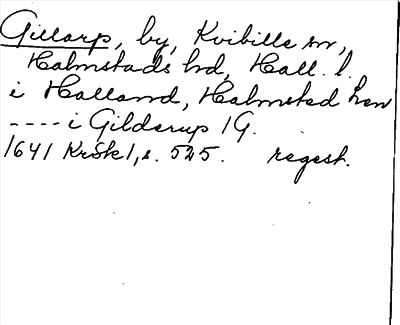 Gillarp, by, Kvibille sn,
Halmstads hd, Hall. l.
i Halland, Halmsted Len
---- i Gilderup 1G.
1641 KrSk 1, s. 525. regest.